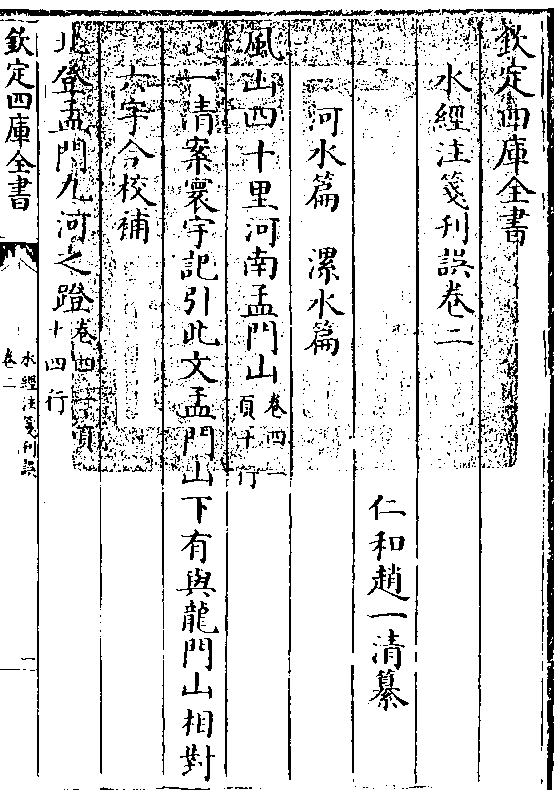 欽定四庫全書
水經注箋刊誤卷二
仁和趙一清纂
河水篇　漯水篇
風山四十里河南孟門山卷四一頁十行
一清案寰宇記引此文孟門山下有與龍門山相對
六字今校補
北登孟門九河之隥卷四一頁十四行
欽定四庫全書
水經注箋刊誤
卷二
一